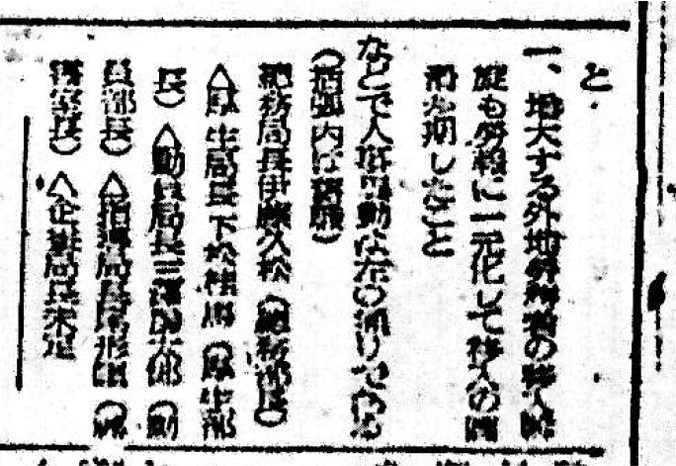 と
一、増大する外地労務者の移入斡
旋も労報に一元化して移入の円
滑を期したこと
などで人事異動は左の通りである
（括弧内は旧職）
総務局長伊藤久松（総務部長）
△厚生局長下松桂馬（厚生部
長）△動員局長三沢房太郎（動
員部長）△指導局長尾形（
書室長）△企業局長未定